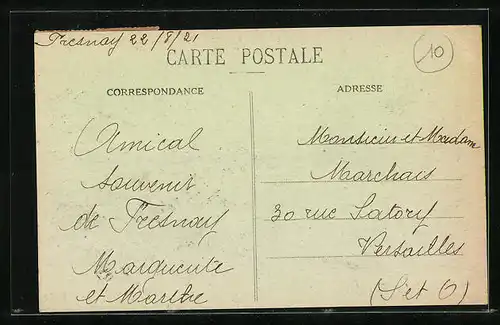 Fresnay 22/8/21
CARTE POSTALE
10
CORRESPONDANCE
Amical
souvenir
de Fresnay
Marguerite
et Marthe
ADRESSE
Monsieur et Madam
Marchais
30 rue Satory
Versailles
(S et O)